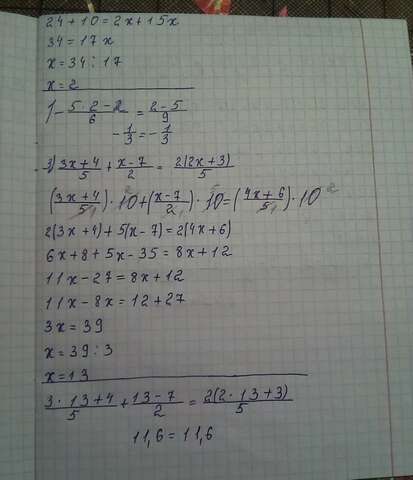 24+10=2x+15x
34=17x
x=34:17
x=2
1-(5·2-2)/6=(2-5)/9
-1/3=-1/3
3) (3x+4)/5+(x-7)/2=2(2x+3)/5
((3x+4)/5)·10+((x-7)/2)·10=((4x+6)/5)·10
2(3x+4)+5(x-7)=2(4x+6)
6x+8+5x-35=8x+12
11x-27=8x+12
11x-8x=12+27
3x=39
x=39:3
x=13
(3·13+4)/5+(13-7)/2=2(2·13+3)/5
11,6=11,6